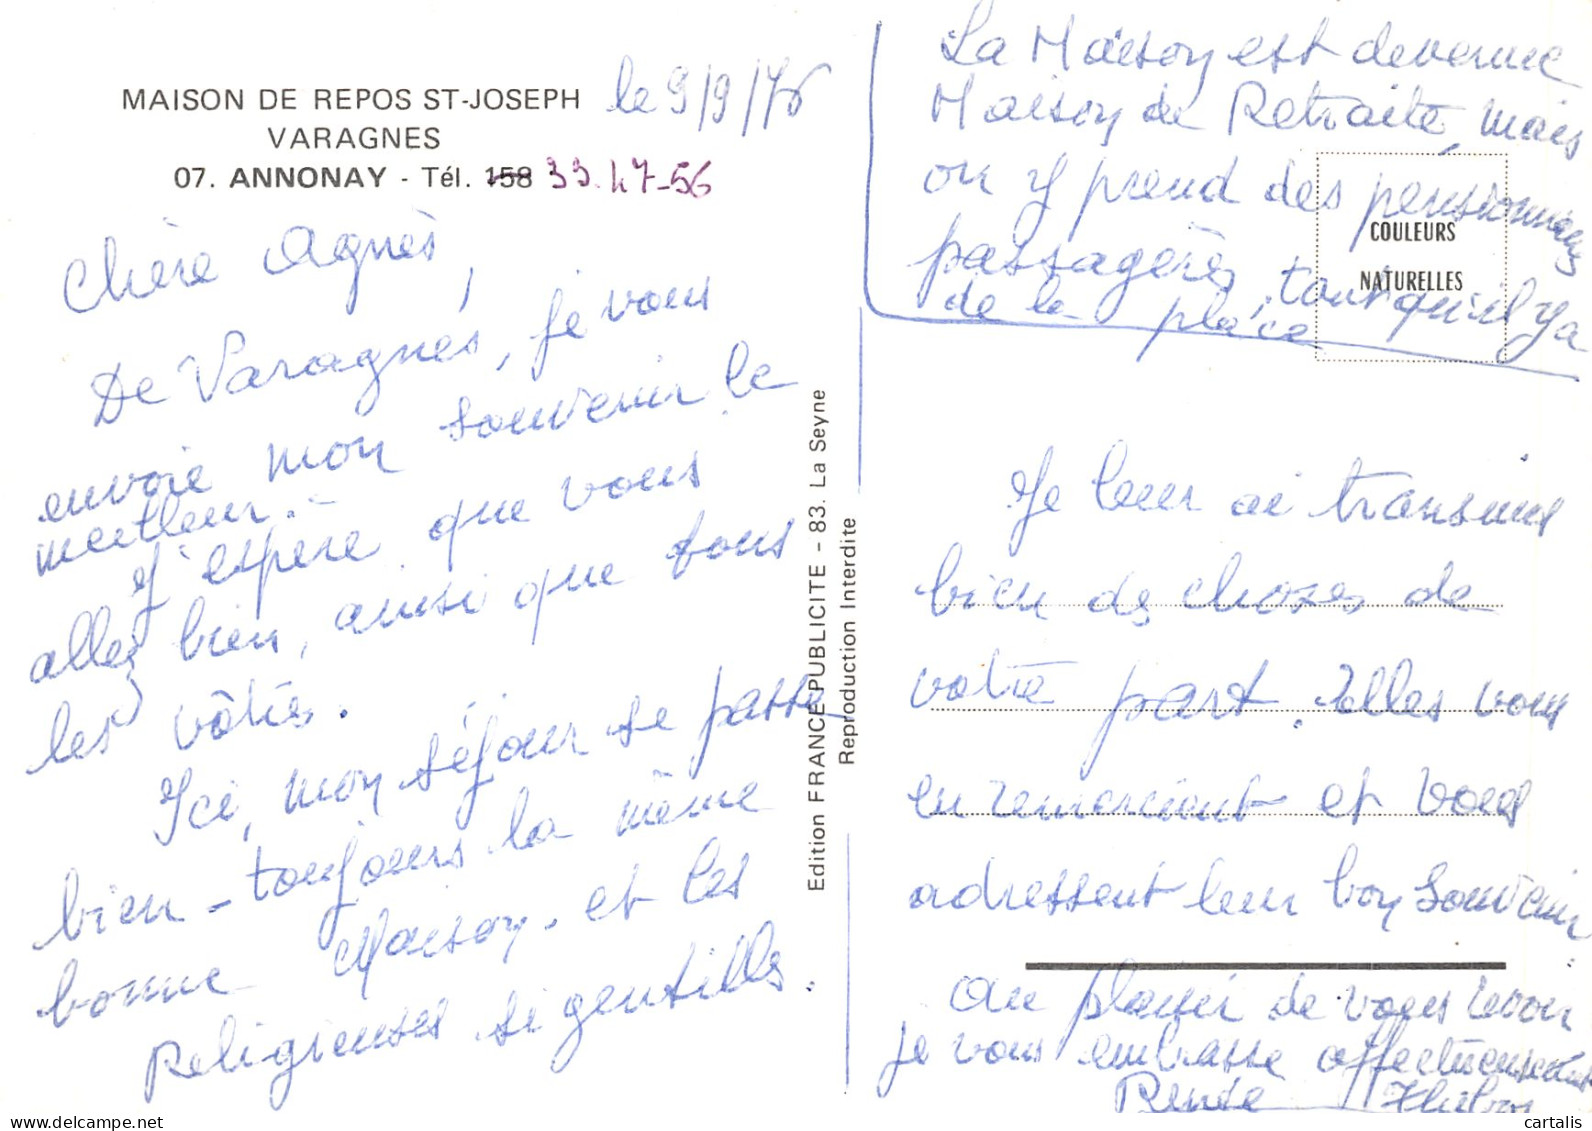 MAISON DE REPOS ST-JOSEPH
VARAGNES
07. ANNONAY - Tél. 158 33.47-56
le 9/9/76
Chère Agnès,
De Varagnes, je vous
envoie mon souvenir le
meilleur.-
J'espère que vous
allez bien, ainsi que tous
les vôtres.
Ici, mon séjour se passe
bien - toujours la même
bonne Maison - et les
Religieuses si gentilles.
Edition FRANCE PUBLICITE - 83. La Seyne
Reproduction Interdite
La Maison est devenue
Maison de Retraite, mais
on y prend des pensionnaires
passagères, tant qu'il y a
de la place
COULEURS
NATURELLES
Je leur ai transmis
bien des choses de
votre part. Elles vous
en remercient et vous
adressent leur bon souvenir.
Au plaisir de vous revoir
je vous embrasse affectueusement
Renée
cartalis